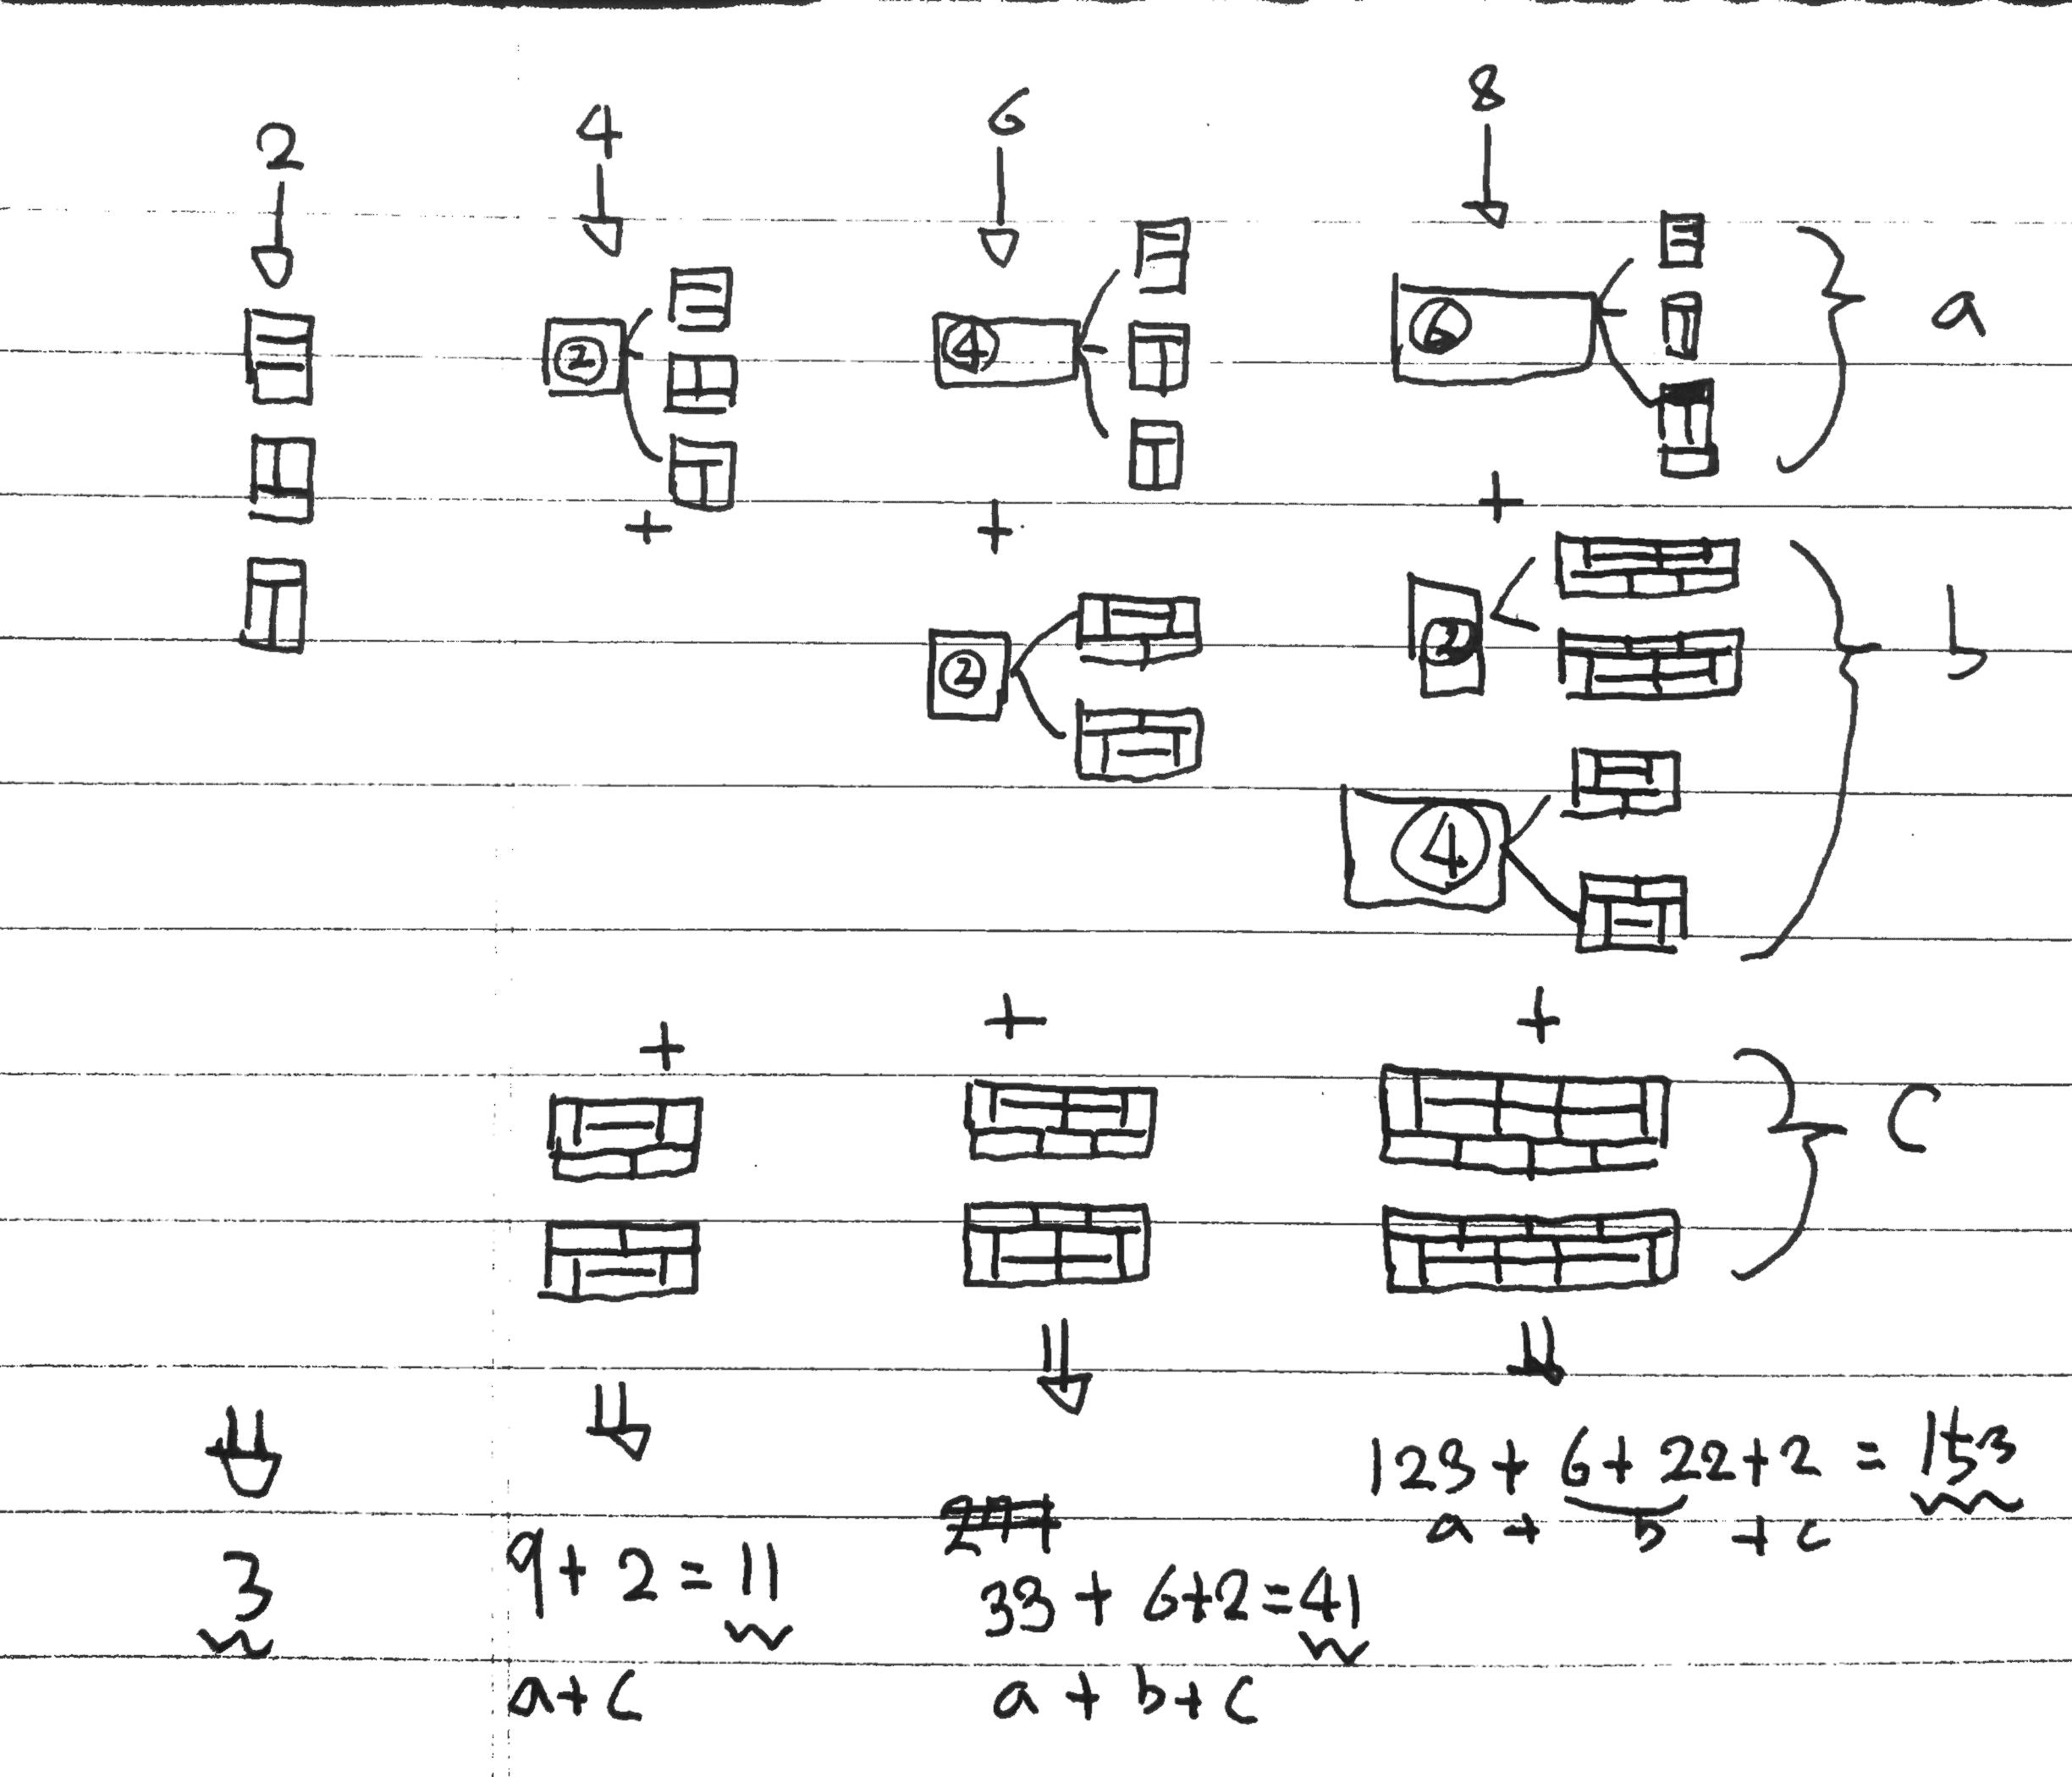 2 4 6 8
② ④ ⑥
a
+ + +
② b
④
+ + +
C
123 + 6 + 22 + 2 = 153
a + b + c
3 9 + 2 = 11 33 + 6 + 2 = 41
a + c a + b + c